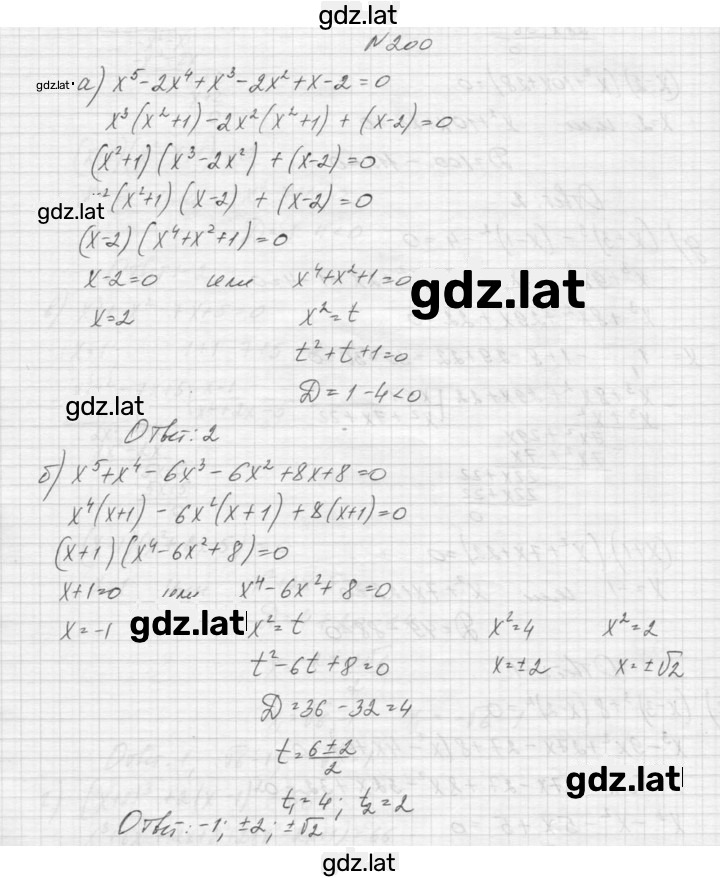 gdz.lat
N200
gdz.lat а) x⁵-2x⁴+x³-2x²+x-2=0
x³(x²+1)-2x²(x²+1)+(x-2)=0
(x²+1)(x³-2x²)+(x-2)=0
²(x²+1)(x-2)+(x-2)=0
gdz.lat
(x-2)(x⁴+x²+1)=0
x-2=0 или x⁴+x²+1=0
gdz.lat
x=2 x²=t
t²+t+1=0
D=1-4<0
gdz.lat
Ответ: 2
б) x⁵+x⁴-6x³-6x²+8x+8=0
x⁴(x+1)-6x²(x+1)+8(x+1)=0
(x+1)(x⁴-6x²+8)=0
x+1=0 или x⁴-6x²+8=0
x=-1 gdz.lat x²=t x²=4 x²=2
t²-6t+8=0 x=±2 x=±√2
D=36-32=4
t=(6±2)/2
gdz.lat
t₁=4; t₂=2
Ответ: -1; ±2; ±√2
gdz.lat